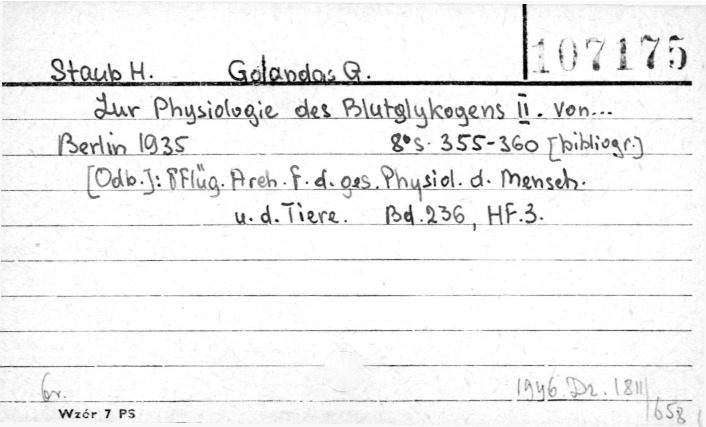 107175
Staub H. Golandas G.
Zur Physiologie des Blutglykogens II. von...
Berlin 1935 8° s. 355-360 [bibliogr.]
[Odb.]: Pflüg. Arch. f. d. ges. Physiol. d. Mensch.
u. d. Tiere. Bd. 236, HF. 3.
br. 1946. Dz. 1811/
/658
Wzór 7 PS